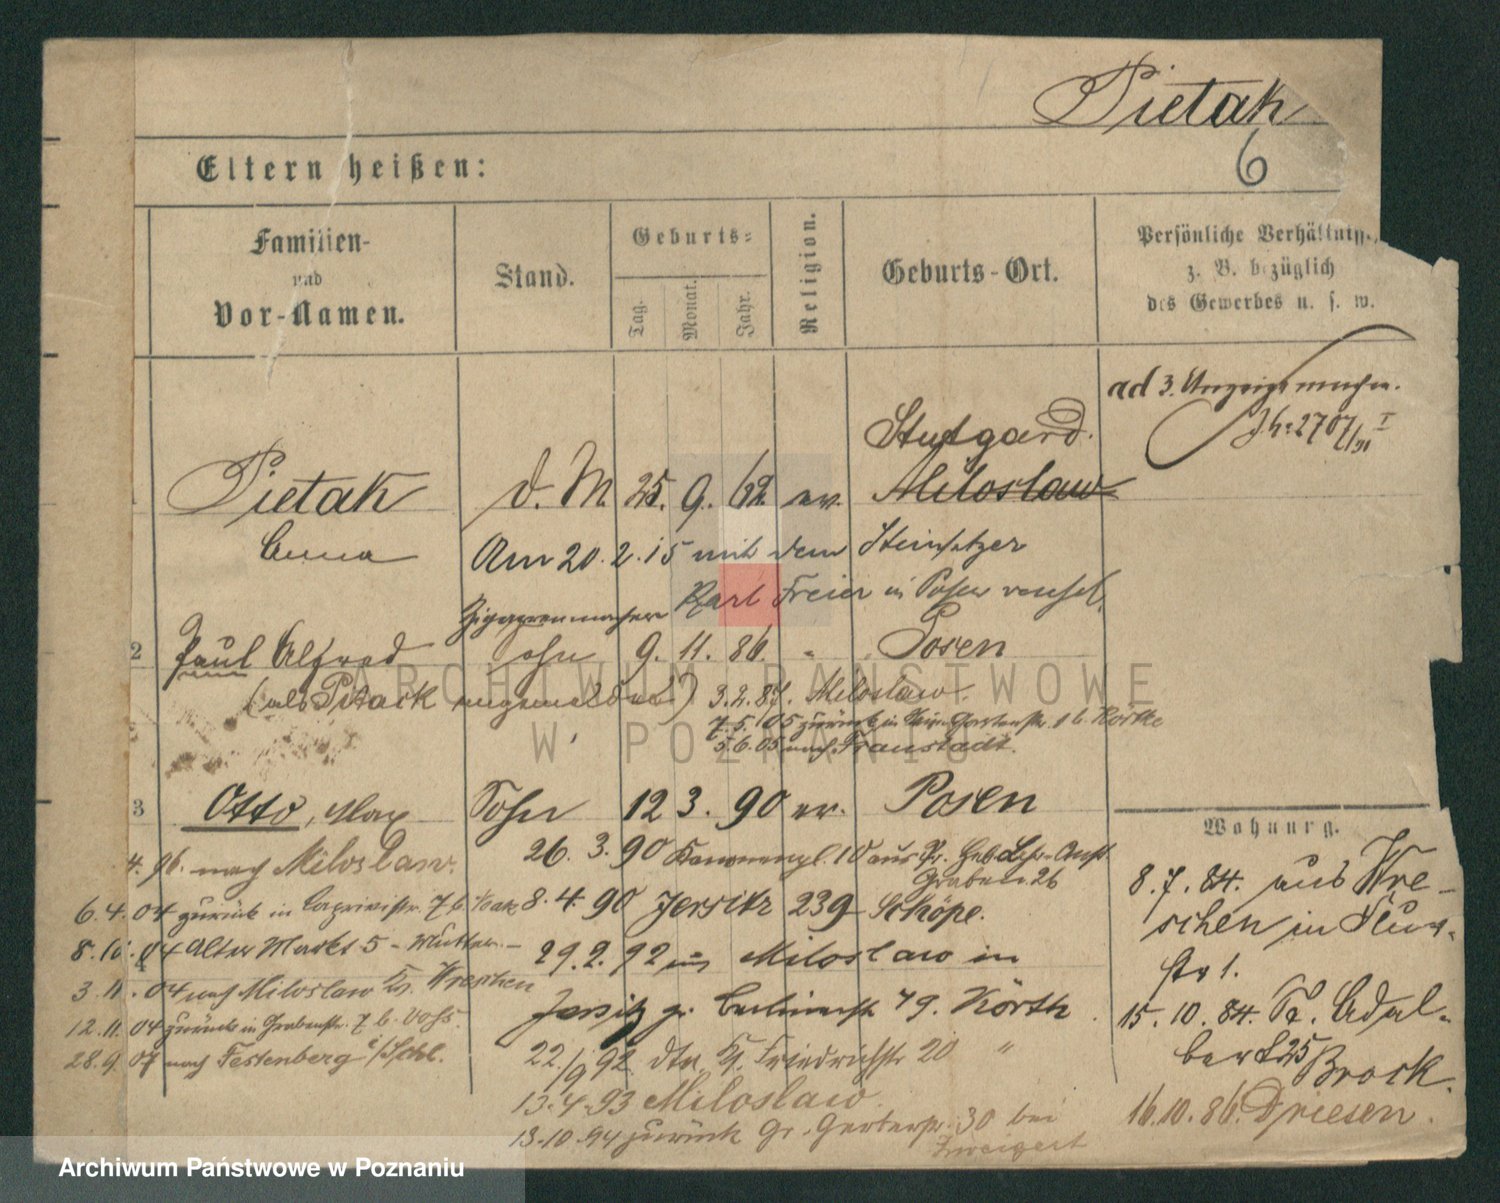 Pietak
6
Eltern heißen:
Familien-
und
Vor-Namen.
Stand.
Geburts-
Tag.
Monat.
Jahr.
Religion.
Geburts-Ort.
Persönliche Verhältniss
z. B. bezüglich
des Gewerbes u. s. w.
ad 3. Anzeige machen.
Stuttgard.
Pietak d. M. 25. 9. 62. ev. Miloslaw
Anna Am 20. 2. 15 mit dem Steinsetzer
Karl Freier in Posen
Zigarrenmacher
2 Paul Alfred Sohn 9. 11. 86. " Posen
(als Pitack angemeldet) 3.2.87. Miloslaw.
7.5.05 zurück in
5.6.05 nach Fraustadt.
3 Otto, Max Sohn 12 3. 90 ev. Posen
Wohnung.
4. 96. nach Miloslaw.
6.4.04 zurück in Caprivistr. 7 b.
8.10.04 Alter Markt 5 - Mutter -
4
3.11.04 nach Miloslaw Kr. Wreschen
12.11.04 zurück in Grabenstr. 7 b. Voss.
28.9.07 nach Festenberg i/Schl.
26. 3. 90 Kanonenpl. 10 aus Pr. Heb. Lehr-Anst.
Graben 26
8. 4. 90 Jersitz 239 Schöpe.
29. 2. 92 aus Miloslaw in
Jersitz gr. Berlinerstr 79. Körth.
22/9 92 Friedrichstr 20 "
13.4.93 Miloslaw.
13.10.94 zurück Gr. Gerberstr. 30 bei
Zweigert
8.7.84. aus Wre-
schen in
str 1.
15.10.84. St. Adal-
bert 25 Brock.
16.10.86. Driesen.
ARCHIWUM PAŃSTWOWE
W POZNANIU
Archiwum Państwowe w Poznaniu